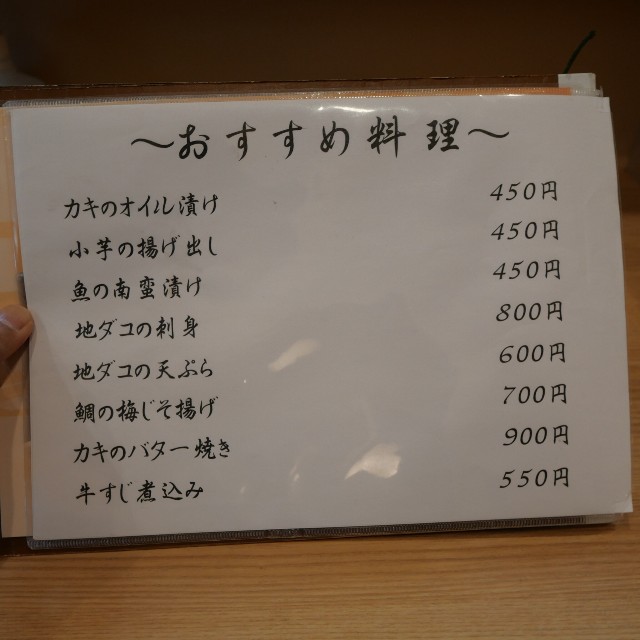 ～おすすめ料理～
カキのオイル漬け 450円
小芋の揚げ出し 450円
魚の南蛮漬け 450円
地ダコの刺身 800円
地ダコの天ぷら 600円
鯛の梅じそ揚げ 700円
カキのバター焼き 900円
牛すじ煮込み 550円